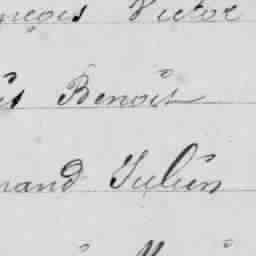 nçois Victor
is Benoit
nand Julien